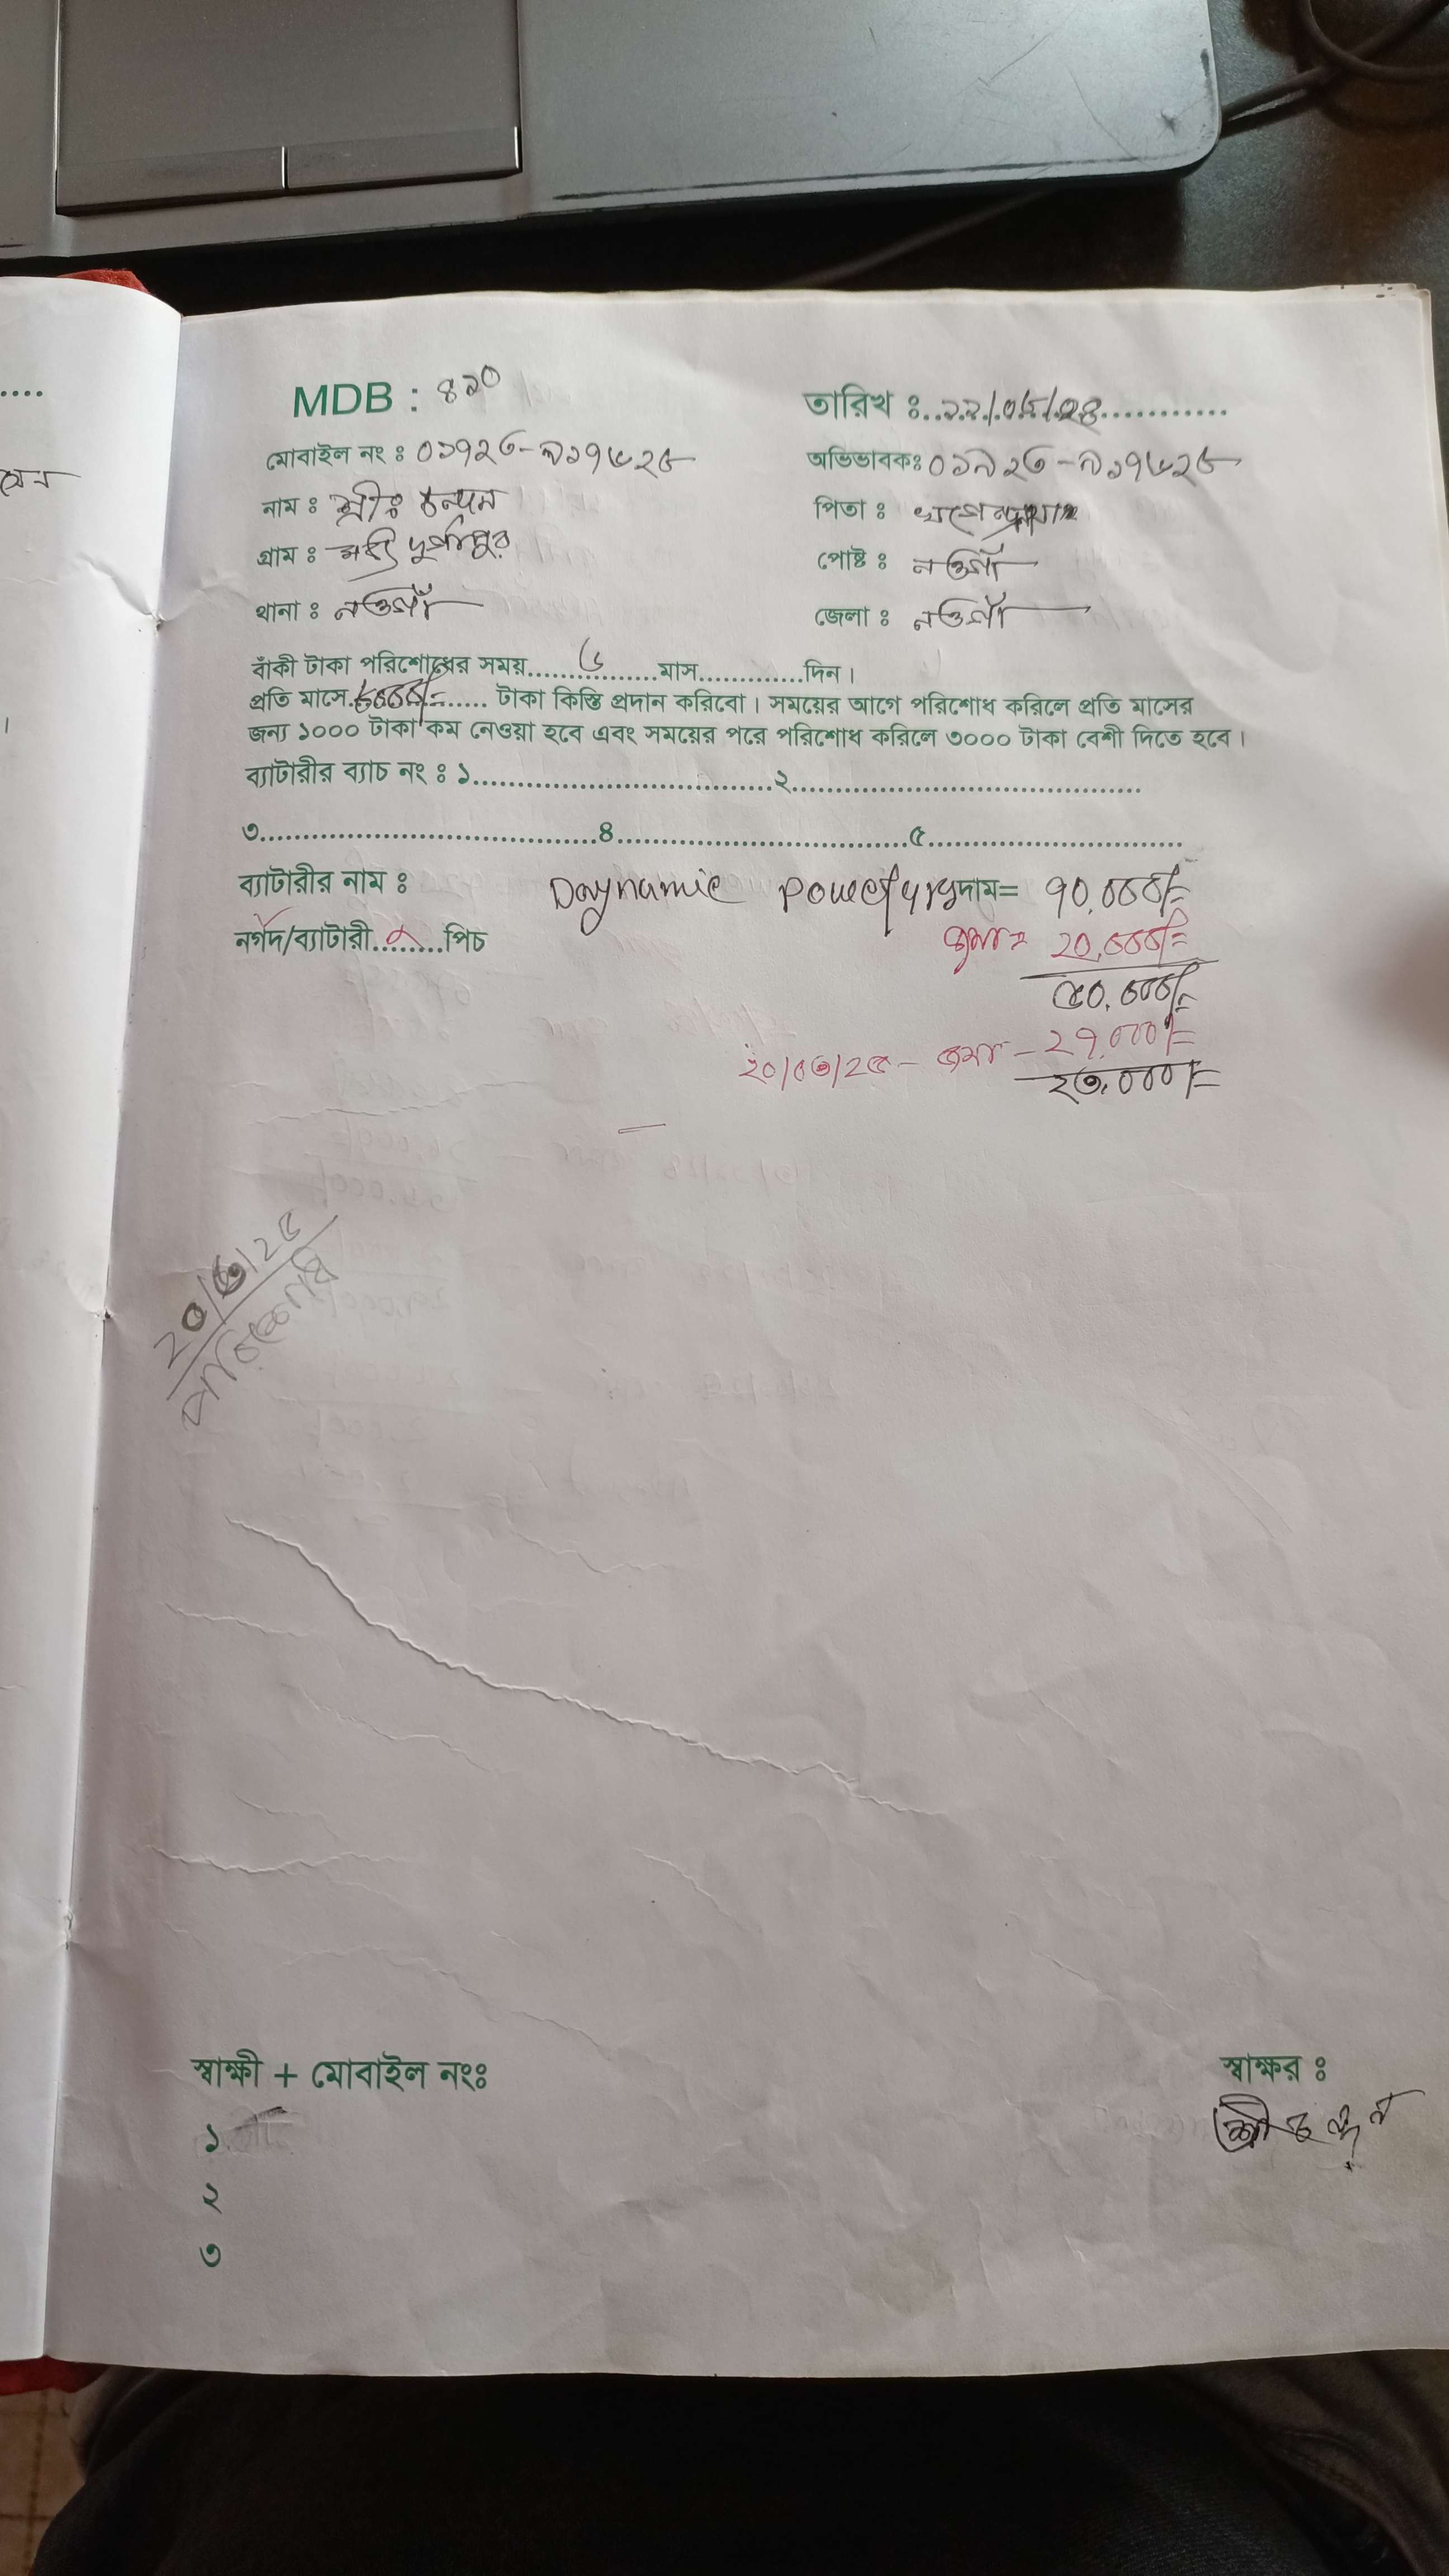 MDB : ৪১০
তারিখ ঃ..২২/০৫/২৪...........
মোবাইল নং ঃ ০১৭২৩-৯১৭৬২৫
অভিভাবকঃ ০১৯২৩-৯১৭৬২৫
নাম ঃ শ্রীঃ চন্দন
পিতা ঃ
গ্রাম ঃ দূর্গাপুর
পোষ্ট ঃ নওগাঁ
থানা ঃ নওগাঁ
জেলা ঃ নওগাঁ
বাঁকী টাকা পরিশোধের সময়......৬......মাস.............দিন।
প্রতি মাসে............ টাকা কিস্তি প্রদান করিবো। সময়ের আগে পরিশোধ করিলে প্রতি মাসের
জন্য ১০০০ টাকা কম নেওয়া হবে এবং সময়ের পরে পরিশোধ করিলে ৩০০০ টাকা বেশী দিতে হবে।
ব্যাটারীর ব্যাচ নং ঃ ১....................................২..........................................
৩........................................৪...................................৫..............................
ব্যাটারীর নাম ঃ Daynamic Power দাম= ৭০,০০০/=
নগদ/ব্যাটারী........পিচ জমা= ২০,০০০/=
৫০,০০০/=
২০/০৩/২৫ - জমা - ২৭,০০০/=
২৩,০০০/=
২০/৩/২৫
পরিশোধ
স্বাক্ষী + মোবাইল নংঃ
স্বাক্ষর ঃ
১
শ্রী চন্দন
২
৩